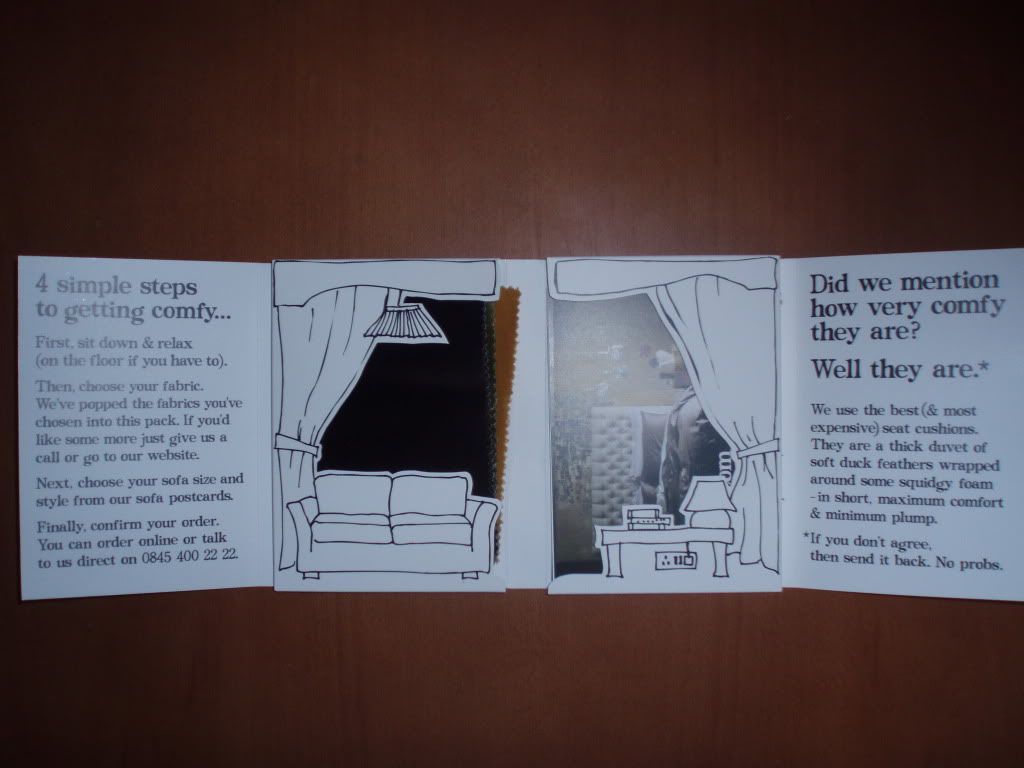 4 simple steps
to getting comfy...
First, sit down & relax
(on the floor if you have to).
Then, choose your fabric.
We've popped the fabrics you've
chosen into this pack. If you'd
like some more just give us a
call or go to our website.
Next, choose your sofa size and
style from our sofa postcards.
Finally, confirm your order.
You can order online or talk
to us direct on 0845 400 22 22.
Did we mention
how very comfy
they are?
Well they are.*
We use the best (& most
expensive) seat cushions.
They are a thick duvet of
soft duck feathers wrapped
around some squidgy foam
- in short, maximum comfort
& minimum plump.
*If you don't agree,
then send it back. No probs.